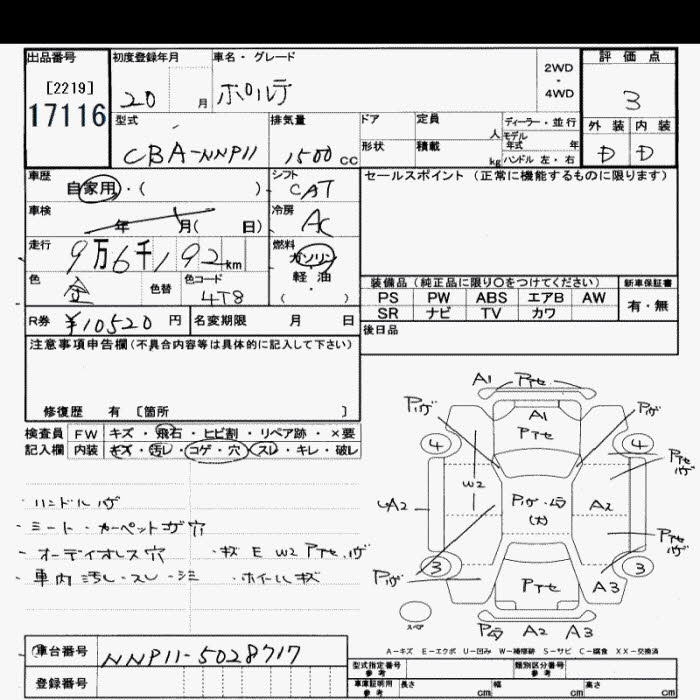 出品番号 初度登録年月 車名・グレード 2WD・4WD 評価点
[2219]
17116
20 月 ポルテ 3
型式 排気量 ドア 定員 人 ディーラー・並行 外装 内装
モデル年式 年
CBA-NNP11 1500 cc 形状 積載 kg ハンドル 左・右 D D
車歴 自家用・( ) シフト CAT セールスポイント(正常に機能するものに限ります)
車検 年 月( 日) 冷房 AC
走行 9万6千192 km 燃料 ガソリン・軽油 ( )
色 金 色替 色コード 4T8
装備品(純正品に限り〇をつけてください) 新車保証書
PS PW ABS エアB AW 有・無
SR ナビ TV カワ
R券 ¥10520 円 名変期限 月 日 後日品
注意事項申告欄(不具合内容等は具体的に記入して下さい)
修復歴 有 〔箇所 〕
検査員 FW キズ・飛石・ヒビ割・リペア跡・×要
記入欄 内装 キズ・汚レ・コゲ・穴・スレ・キレ・破レ
・ハンドルハゲ
・シート・カーペットコゲ穴
・オーディオレス穴 ・キズ E W2 Pアセ、ハゲ
・車内汚レ・スレ・シミ ・ホイールキズ
A1 Pアセ
Pハゲ A1 Pハゲ
Pアセ
4 4
Pアセ ハゲ
W2
A2 Pハゲ・ムラ (大) A2
Pアセ ハゲ
3 3
Pハゲ Pアセ A3
スペア
Pムラ A2 A3
A-キズ E-エクボ U-凹み W-補修跡 S-サビ C-腐食 XX-交換済
車台番号 NNP11-5028717
登録番号
型式指定番号 参考 類別区分番号 参考
車庫証明用 参考 長さ cm 幅 cm 高さ cm